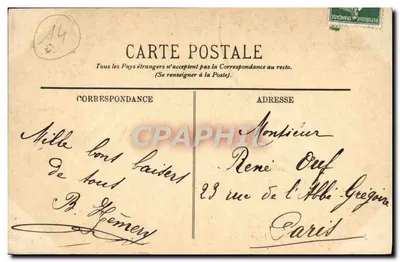 14
RÉPUBLIQUE FRANÇAISE
CARTE POSTALE
Tous les Pays étrangers n'acceptent pas la Correspondance au recto.
(Se renseigner à la Poste).
CORRESPONDANCE
Mille bons baisers
de tous
B. Hémery
ADRESSE
Monsieur
René Ouf
23 rue de l'Abbé Grégoire
Paris
CPAPHIL